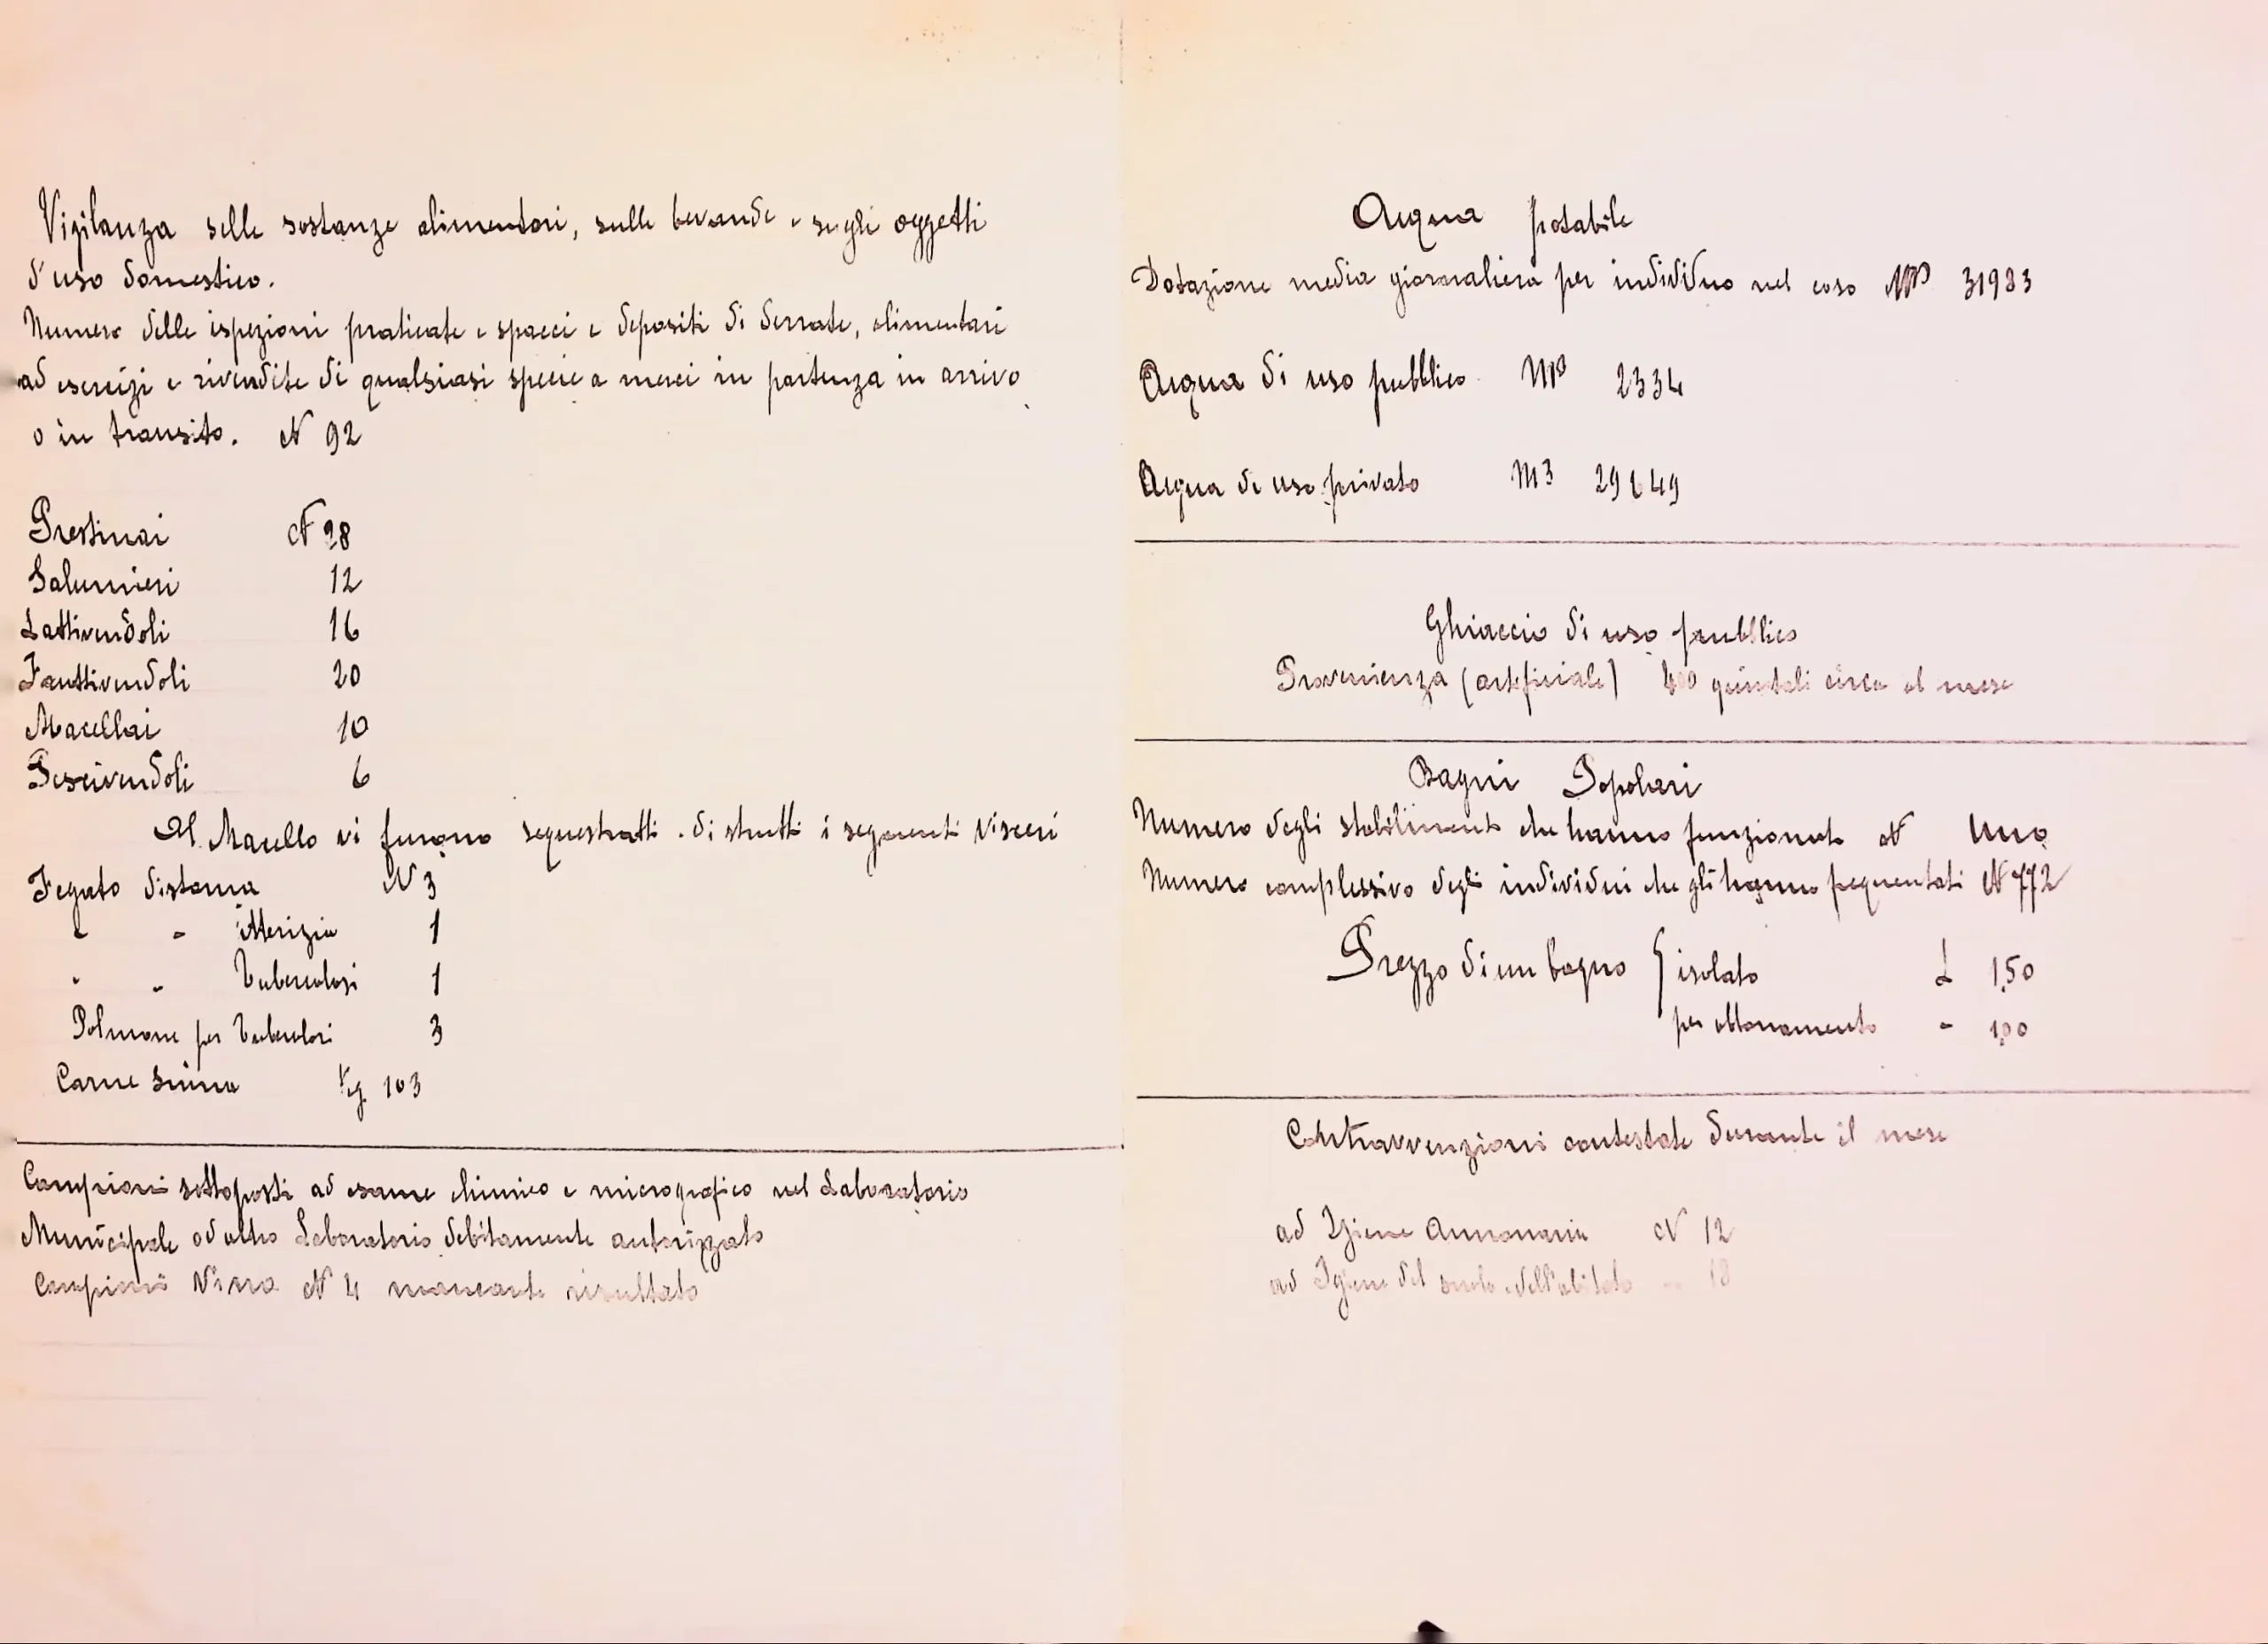 Vigilanza selle sostanze alimentari, sulle bevande e sugli oggetti
d'uso domestico.
Numero delle ispezioni praticate e spacci e depositi di derrate, alimentari
ad esercizi e rivendite di qualsiasi specie a merci in partenza in arrivo
o in transito. N 92
Prestinai N 28
Salumieri 12
Lattivendoli 16
Fruttivendoli 20
Macellai 10
Pescivendoli 6
Al Macello vi furono sequestratti e distrutti i seguenti visceri
Fegato distoma N 3
" " itterizia 1
" " Tubercolosi 1
Polmone per Tubercolosi 3
Carne Suina Kg 103
Campioni sottoposti ad esame chimico e micrografico nel Laboratorio
Municipale od altro Laboratorio debitamente autorizzato
Campioni Vino N 4 mancante risultato
Acqua potabile
Dotazione media giornaliera per individuo nel M3 31983
Acqua di uso pubblico M3 2334
Acqua di uso privato M3 29649
Ghiaccio di uso pubblico
Provenienza (artificiale) 400 quintali circa al mese
Bagni Popolari
Numero degli stabilimenti che hanno funzionato N Uno
Numero complessivo degli individui che gli hanno frequentati N 772
Prezzo di un bagno { isolato £ 1,50
per abbonamento " 1,00
Contravvenzioni contestate durante il mese
ad Igiene Annonaria N 12
ad Igiene del suolo e dell'abitato - 18